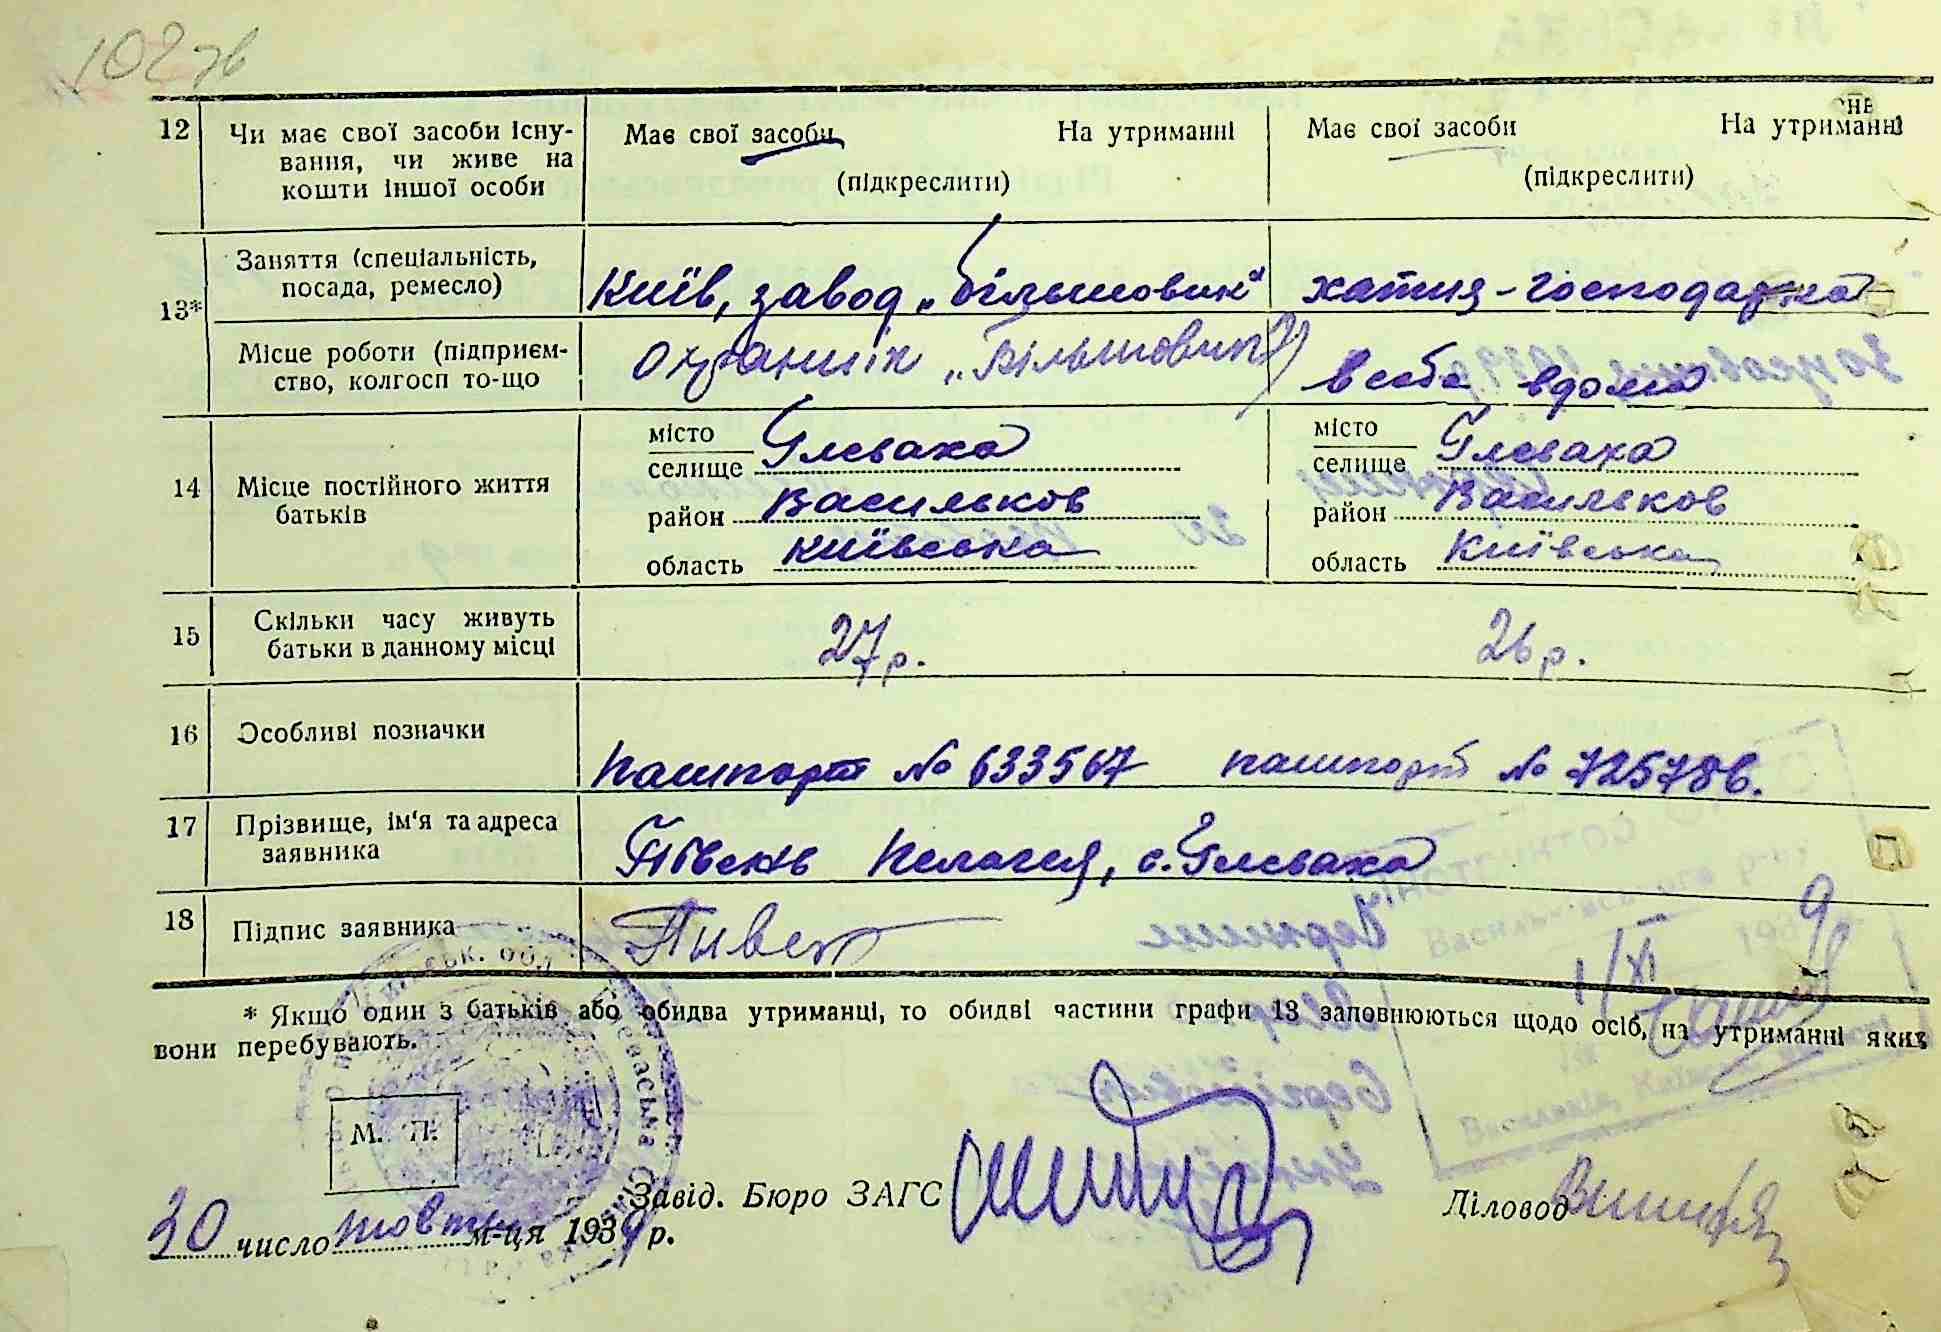 102 зв
12 Чи має свої засоби існу- Має свої засоби На утриманні Має свої засоби На утриманні
вання, чи живе на
кошти іншої особи (підкреслити) (підкреслити)
Заняття (спеціальність,
посада, ремесло) Київ, завод „Більшовик" хатня-господарка
13*
Місце роботи (підприєм- Охранник „Більшовик"
ство, колгосп то-що у себе вдома
місто Глеваха місто Глеваха
селище селище
14 Місце постійного життя район Васильков район Васильков
батьків
область Київська область Київська
15 Скільки часу живуть
батьки в данному місці 27 р. 26 р.
16 Особливі позначки
пашпорт № 633567 пашпорт № 725786.
17 Прізвище, ім'я та адреса
заявника Півень Пелагея, с. Глеваха
18 Підпис заявника Пивен
1/XI 9
* Якщо один з батьків або обидва утриманці, то обидві частини графи 13 заповнюються щодо осіб, на утриманні яких
вони перебувають.
М. П.
Завід. Бюро ЗАГС Діловод
30 число жовтня м-ця 1939 р.